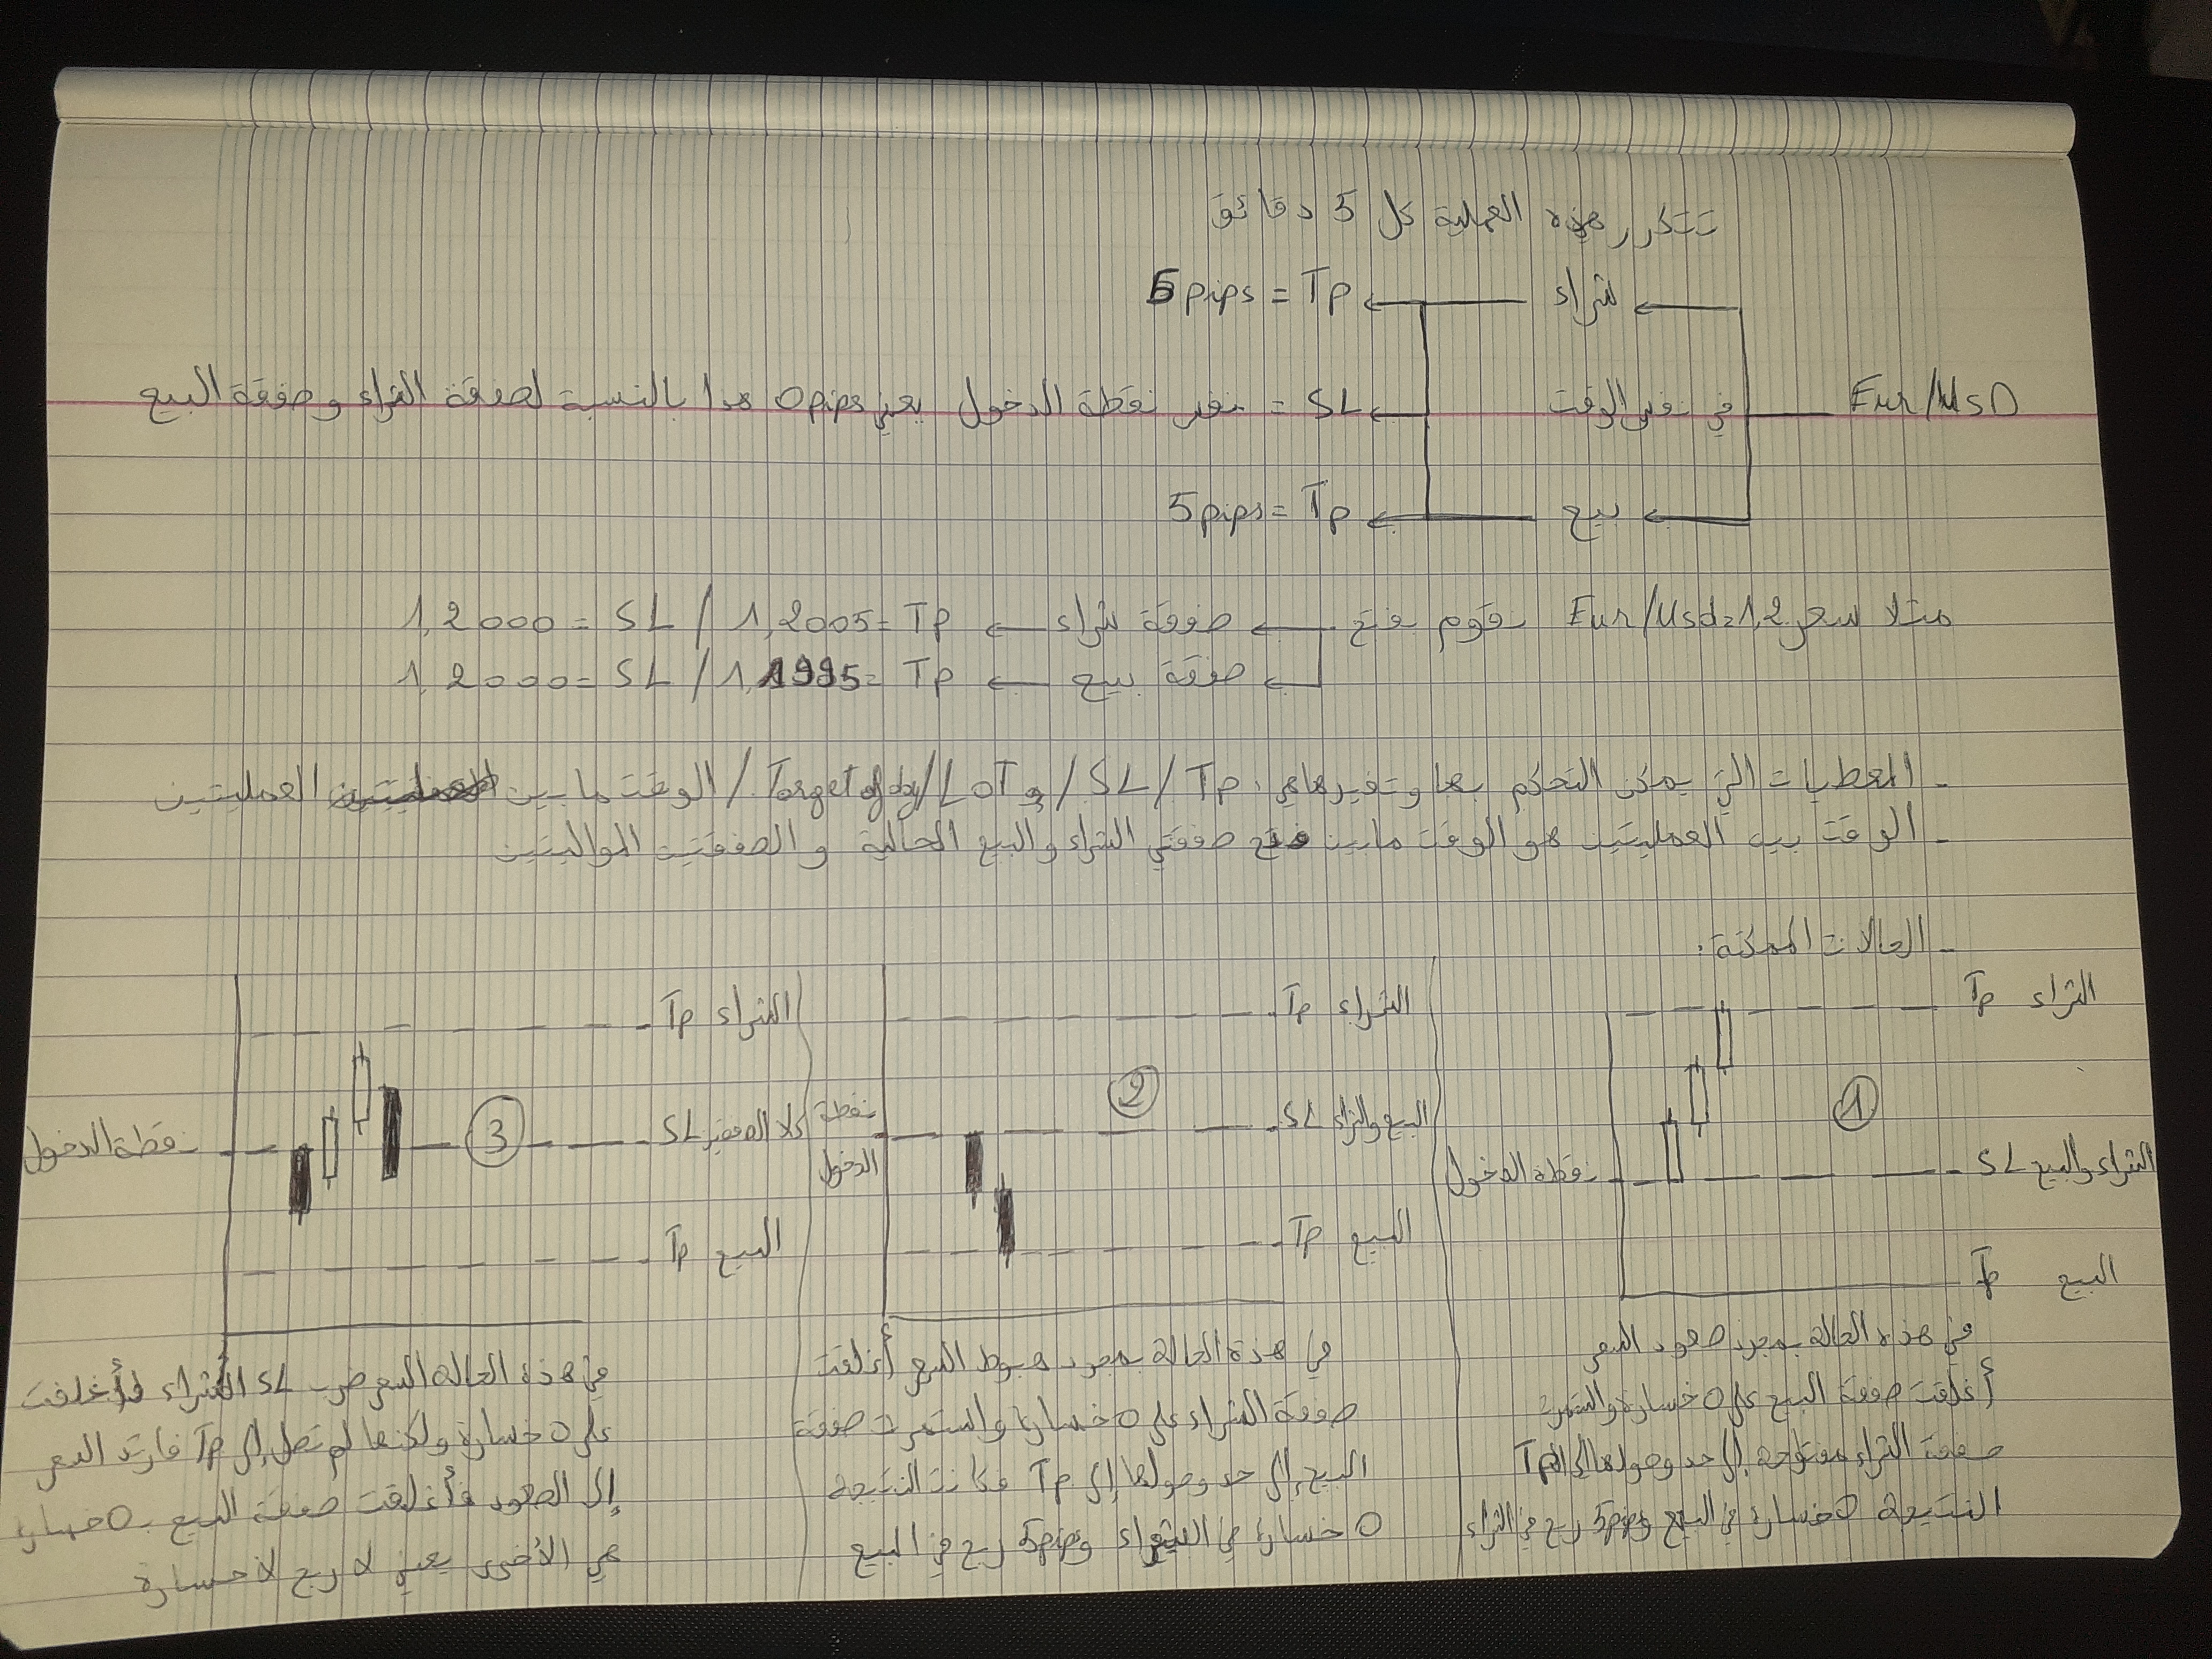 تتكرر هذه العملية كل 5 دقائق
شراء ← Tp = 5pips
Eur/UsD في نفس الوقت ← SL = نفس نقطة الدخول يعني 0pips هدا بالنسبة لصفقة الشراء وصفقة البيع
بيع ← Tp = 5pips
مثلا سعر Eur/Usd=1,2 نقوم بفتح ← صفقة شراء ← Tp =1,2005 / SL =1,2000
صفقة بيع ← Tp =1,1995 / SL =1,2000
- المعطيات التي يمكن التحكم بها وتغيرها هي: Tp / SL / و LoT / Target of day / الوقت ما بين العمليتين
- الوقت بين العمليتين هو الوقت مابين فتح صفقتي الشراء والبيع الحالية والصفقتين المواليتين
- الحالات الممكنة:
الشراء Tp
1
الشراء والبيع SL
نقطة الدخول
البيع Tp
في هذه الحالة بمجرد صعود السعر
أغلقت صفقة البيع على 0 خسارة واستمرت
صفقة الشراء مفتوحة إلى حد وصولها إلى Tp
النتيجة 0 خسارة في البيع و 5pips ربح في الشراء
الشراء Tp
2
البيع والشراء SL
نقطة
الدخول
البيع Tp
في هذه الحالة بمجرد هبوط السعر أغلقت
صفقة الشراء على 0 خسارة واستمرت صفقة
البيع إلى حد وصولها إلى Tp فكانت النتيجة
0 خسارة في الشراء و 5pips ربح في البيع
الشراء Tp
3
كلا الصفقتين SL
نقطة الدخول
البيع Tp
في هذه الحالة السعر ضرب SL الشراء وأغلقت
على 0 خسارة ولكنها لم تصل إلى Tp فارتد السعر
إلى الصعود فأغلقت صفقة البيع ب 0 خسارة
هي الأخرى يعني لا ربح لا خسارة